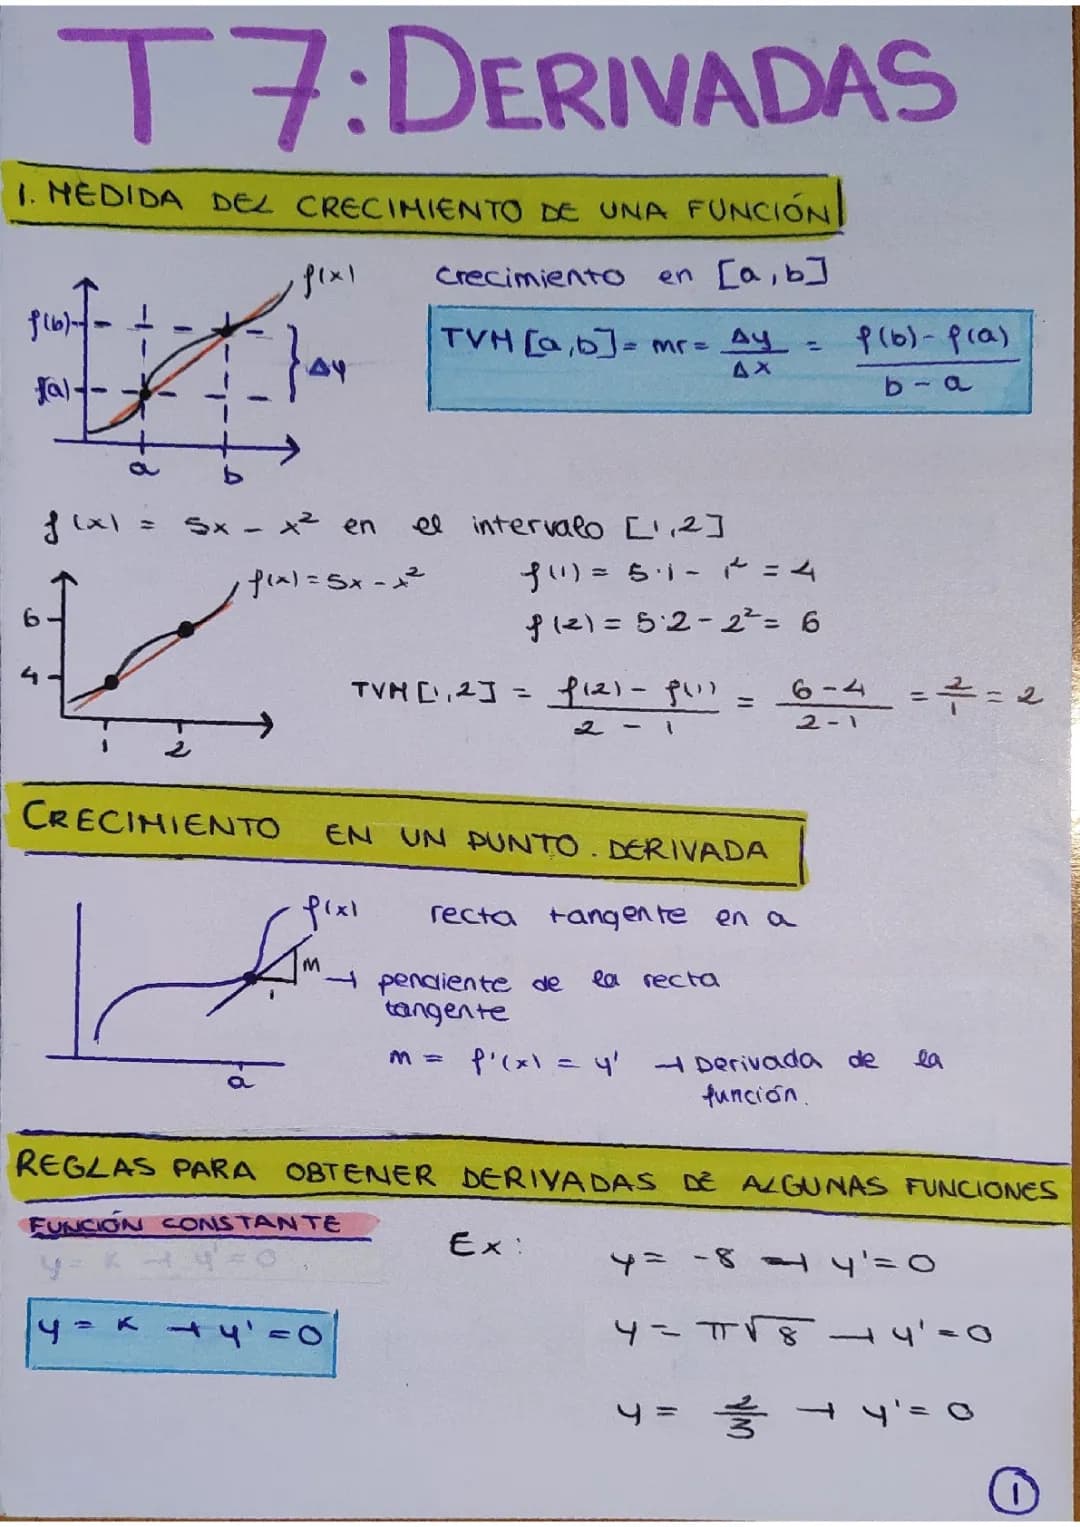 T7: DERIVADAS
1. MEDIDA DEL CRECIMIENTO DE UNA FUNCIÓN
f(x)
f(b)
f(a)
Δy
a
b
Crecimiento en [a,b]
TVM [a,b] = mr = Δy/Δx = f(b) - f(a) / b - a
f(x) = 5x - x² en el intervalo [1,2]
f(x) = 5x - x²
6
4
1
2
f(1) = 5·1 - 1² = 4
f(2) = 5·2 - 2² = 6
TVM [1,2] = f(2) - f(1) / 2 - 1 = 6-4 / 2-1 = 2/1 = 2
CRECIMIENTO EN UN PUNTO. DERIVADA
f(x)
m
1
a
recta tangente en a
→ pendiente de la recta
tangente
m = f'(x) = y' → Derivada de la
función.
REGLAS PARA OBTENER DERIVADAS DE ALGUNAS FUNCIONES
FUNCIÓN CONSTANTE
y = k → y' = 0
y = k → y' = 0
Ex:
y = -8 → y' = 0
y = π√8 → y' = 0
y = 2/3 → y' = 0
1